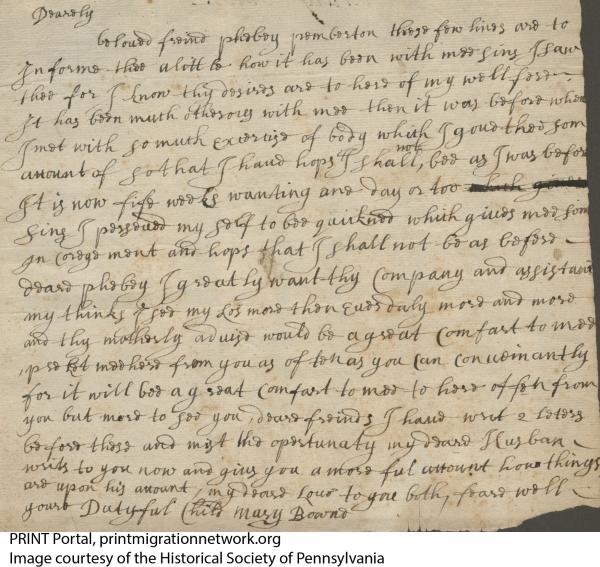 Dearely
beloved freind phebey pemberton these few lines are to
Informe thee a lottle how it has been with mee sing I saw
thee for I know thy desires are to here of my wellfere
It has been much otherways with mee then it was before when
I met with so much Exercise of body which I gave thee som
amount of so that I have hops I shall not bee as I was befor
It is now fife weeks wanting one day or too
sing I perseved my self to bee quickned which gives mee som
In coregement and hops that I shall not be as before
deare phebey I greatly want thy Company and assistans
my thinks I see my Los more then Ever daly more and more
and thy motherly advise would be a great Comfart to mee
pre let mee here from you as often as you Can Conveinantly
for it will bee a great Comfart to mee to here often from
you but more to see you, deare freinds I have writ 2 leters
before these and mist the opertunaty my deare Husban
writs to you now and give you a more ful amount how things
are upon his amount, my deare Love to you both, feare well
youre Dutyful Child Mary Bowne
PRINT Portal, printmigrationnetwork.org
Image courtesy of the Historical Society of Pennsylvania